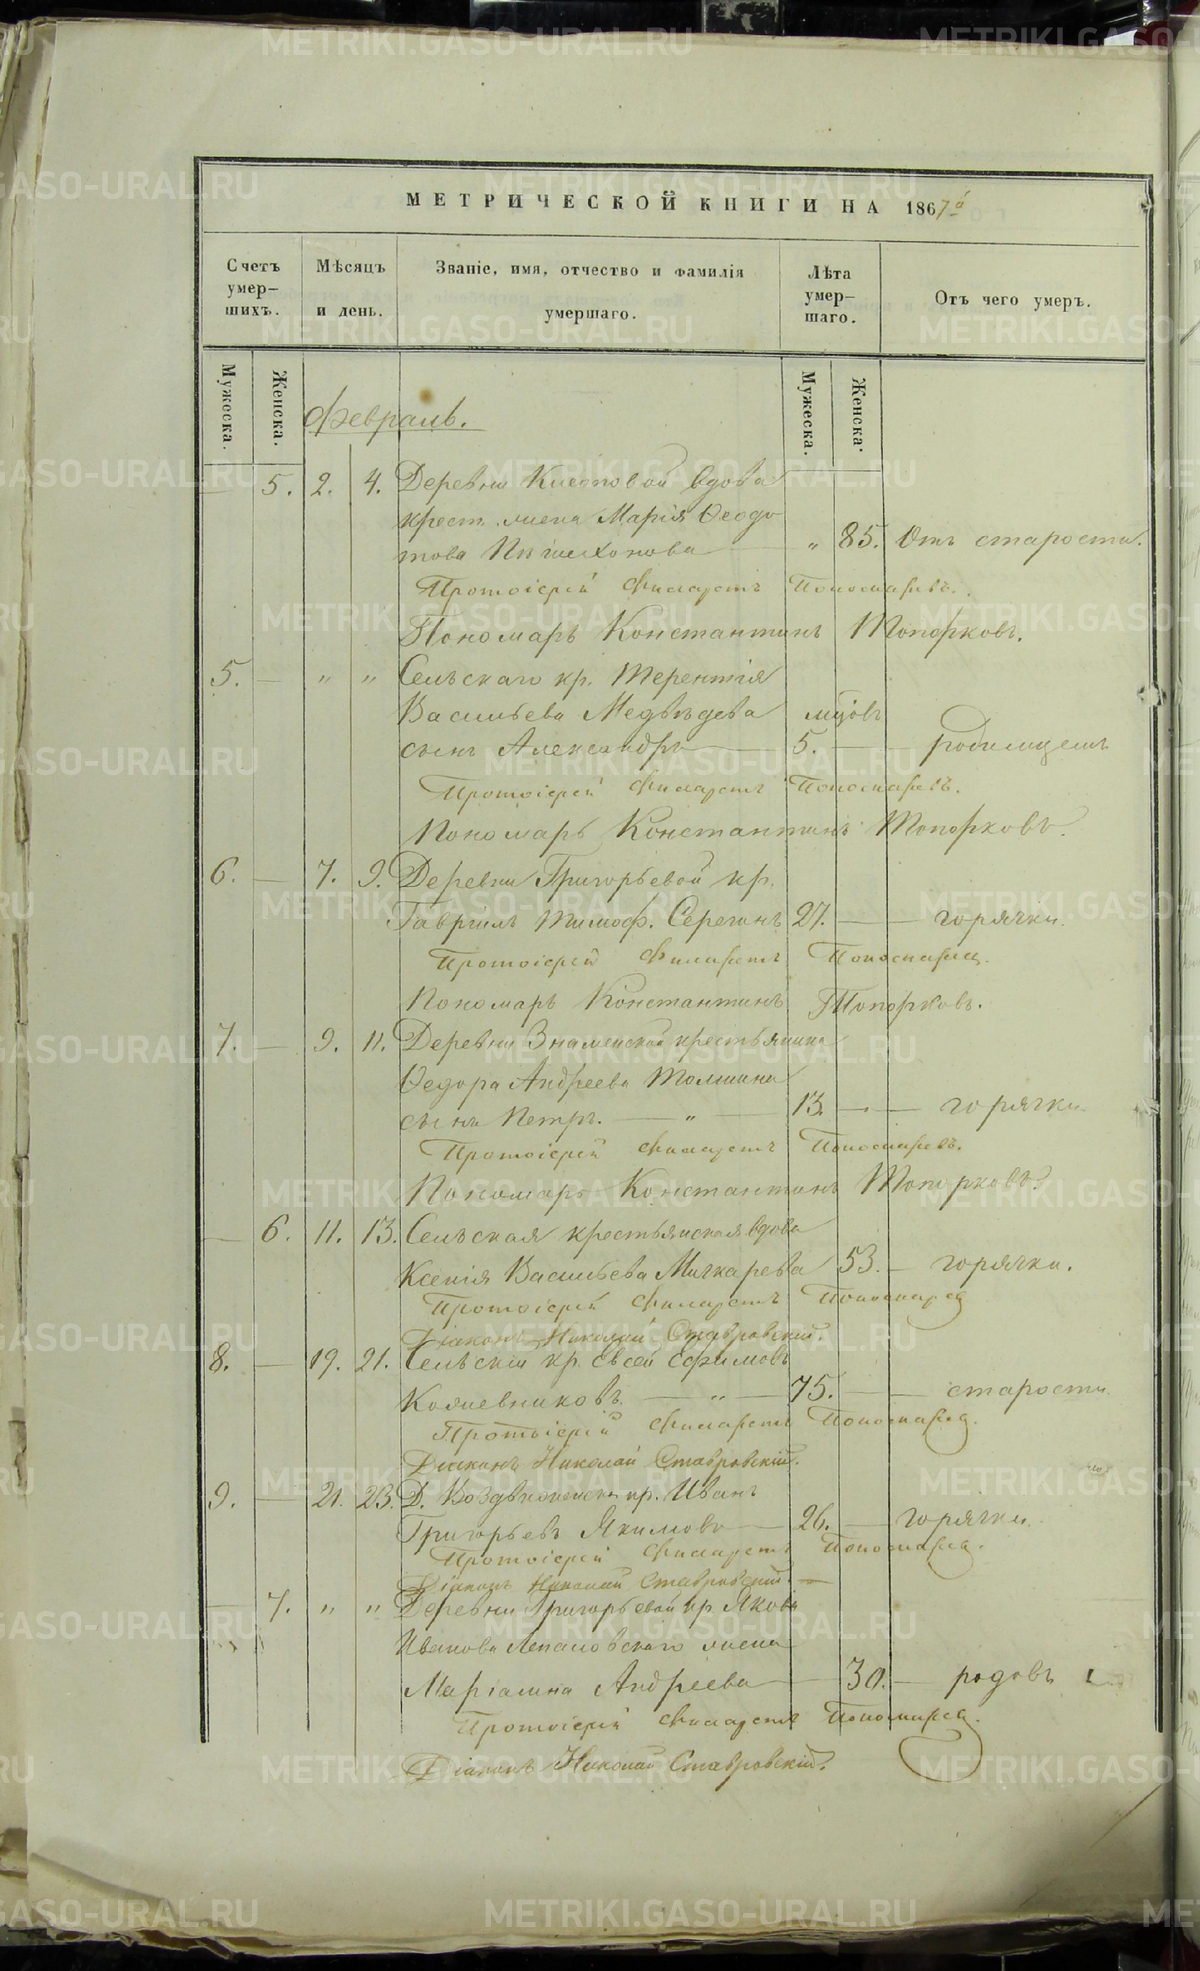 МЕТРИЧЕСКОЙ КНИГИ НА 1867й
Счетъ умер-шихъ.
Мѣсяцъ и день.
Званіе, имя, отчество и фамилія умершаго.
Лѣта умер-шаго.
Отъ чего умеръ.
Мужеска. Женска. Мужеска. Женска.
Февраль.
5. 2. 4. Деревни вдова
крест. жена Марія Ѳеодо
това „ 85. Отъ старости.
Протоіерей Филаретъ Пономаревъ.
Пономарь Константинъ Топорковъ.
5. — „ „ Сельскаго кр. Терентія
Васильева Медвѣдева мцовъ
сынъ Александръ — 5. — родимцемъ
Протоіерей Филаретъ Пономаревъ.
Пономарь Константинъ Топорковъ.
6. — 7. 9. Деревни Григорьевой кр.
Гавріилъ Тимоф. Серегинъ 27. — — горячки.
Протоіерей Филаретъ Пономарев
Пономарь Константинъ Топорковъ.
7. — 9. 11. Деревни Знаменской крестьянина
Ѳедора Андреева Толмина
сынъ Петръ. — „ — 13. — — горячки
Протоіерей Филаретъ Пономаревъ.
Пономарь Константинъ Топорковъ.
— 6. 11. 13. Сельская крестьянская вдова
Ксенія Васильева 53. — горячки.
Протоіерей Филаретъ Пономарев
Діаконъ Николай Ставровскій.
8. — 19. 21. Сельскій кр. Евсей Ефимовъ
Кожевниковъ. — „ — 75. — — старости.
Протоіерей Филаретъ Пономарев.
Діаконъ Николай Ставровскій.
9. — 21. 23. Д. Воздвиженск. кр. Иванъ
Григорьевъ Якимовъ — 26. — горячки.
Протоіерей Филаретъ Пономарев.
Діаконъ Николай Ставровскій. —
— 7. „ „ Деревни Григорьевой кр. Якова
Иванова жена
Маріамна Андреева — 30. — родовъ
Протоіерей Филаретъ Пономарев.
Діаконъ Николай Ставровскій.
METRIKI.GASO-URAL.RU